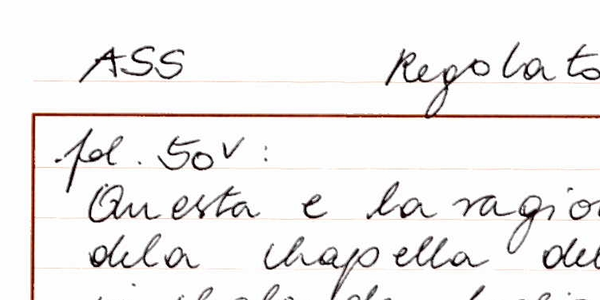 ASS Regolato
fol. 50v:
Questa e la ragio
dela chapella del